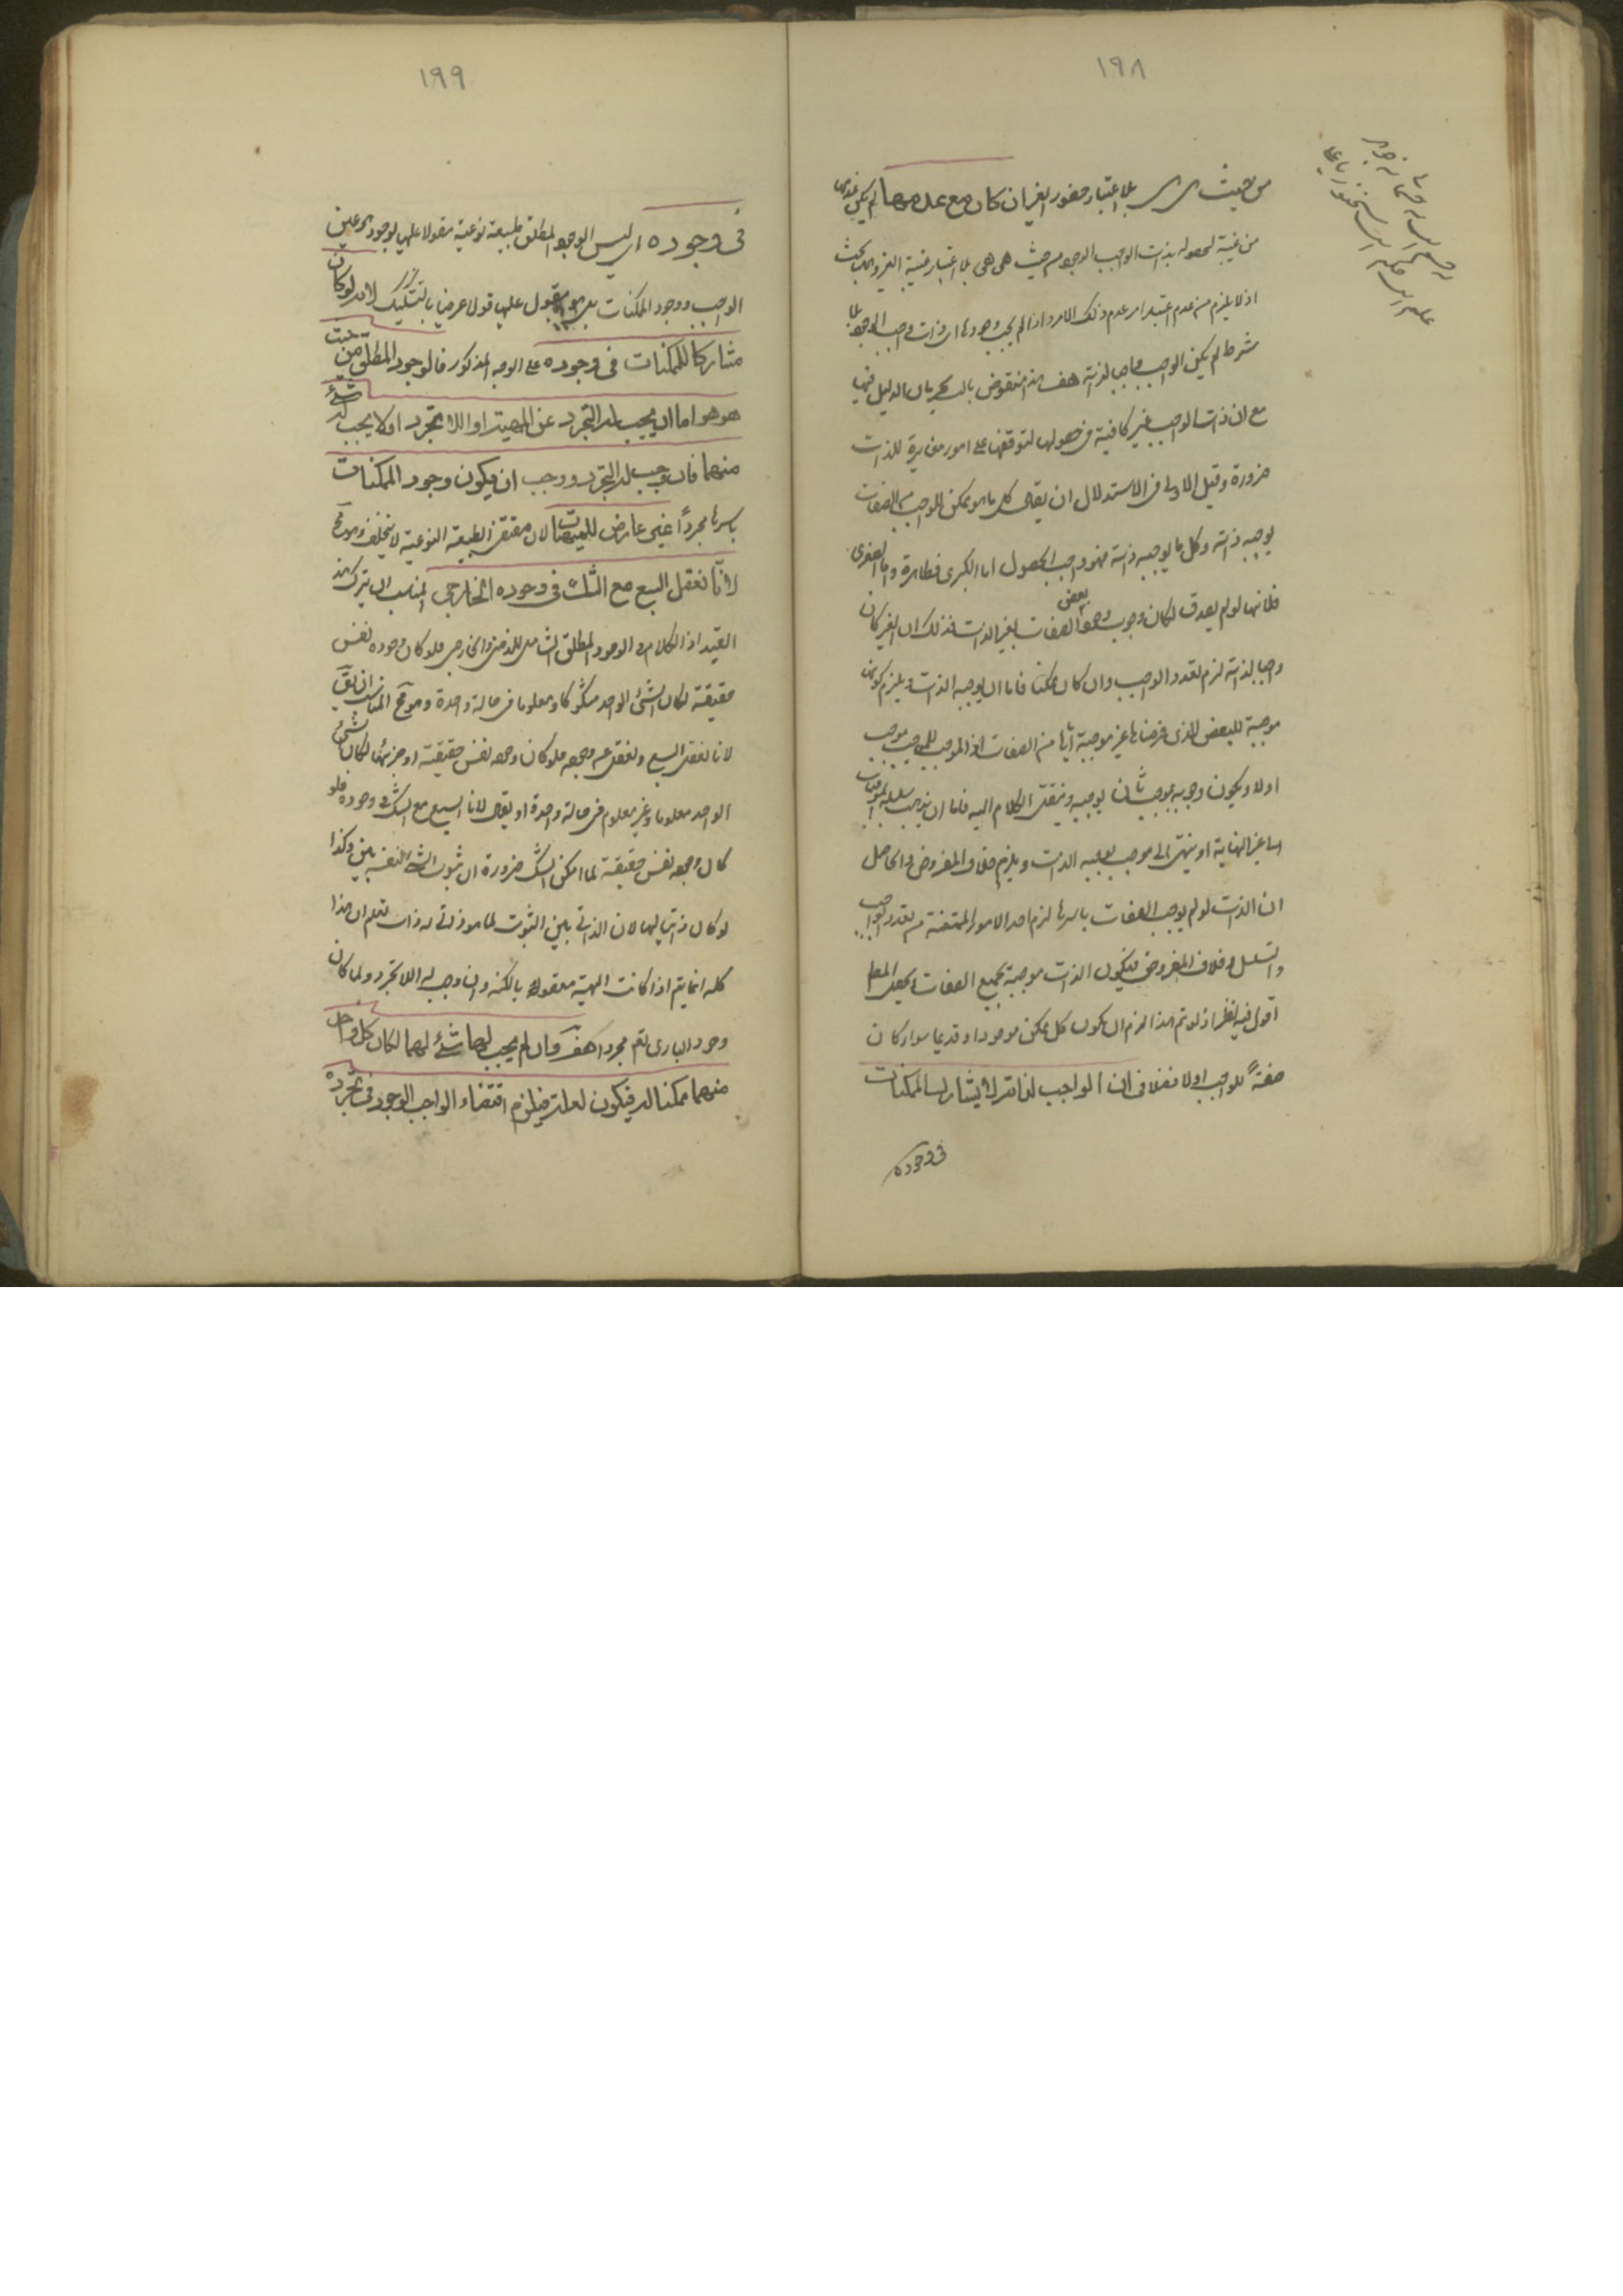 ١٩٨
من حيث هى هى بلا اعتبار حضور الغير ان كان مع عدمها لم يكن عدمها
من غيبة لحصوله بذات الواجب الوجود من حيث هى هى بلا اعتبار غيبة الغير وههنا بحث
اذ لا يلزم من عدم اعتبار امر عدم ذلك الامر واذا لم يجب وجودها اى ذات واجب الوجود بلا
شرط لم يكن الواجب واجبا لذاته هف هذا منقوض بالنسب لجريان الدليل فيها
مع ان ذات الواجب غير كافية فى حصولها لتوقفها على امور مغايرة للذات
ضرورة وقيل الاولى فى الاستدلال ان يقال كل ما هو ممكن للواجب من الصفات
يوجبه ذاته وكل ما يوجبه ذاته فهو واجب الحصول اما الكبرى فظاهرة واما الصغرى
فلانها لو لم يصدق لكان وجوب وجود بعض الصفات بغير الذات فذلك ان الغير كان
واجبا لذاته لزم تعدد الواجب وان كان ممكنا فاما ان يوجبه الذات ويلزم كونها
موجبة للبعض الذى فرضناها غير موجبة اياها من الصفات اذ الموجب للموجب موجب
اولا ويكون وجوبه بموجب ثان يوجبه وينقل الكلام اليه فاما ان يذهب سلسلة الموجبات
الى غير النهاية او ينتهى الى موجب يوجبه الذات ويلزم خلاف المفروض والحاصل
ان الذات لو لم يوجب الصفات باسرها لزم احد الامور الممتنعة من تعدد الواجب
والتسلسل وخلاف المفروض فيكون الذات موجبة لجميع الصفات ويحصل المطلوب
اقول فيه نظر اذ لو تم هذا لزم ان يكون كل ممكن موجودا وقديما سواء كان
صفةً للواجب اولا فصل فى ان الواجب لذاته لا يشارك الممكنات
فى وجوده
١٩٩
فى وجوده اى ليس الوجود المطلق طبيعة نوعية مقولا عليها لوجود هو عين
الواجب ووجود الممكنات بل هو مقول عليها قولا عرضيا بالتشكيك لانه لو كان
مشاركا للممكنات فى وجوده على الوجه المذكور فالوجود المطلق من حيث
هو هو اما ان يجب له التجرد عن المهية او اللا تجرد او لا يجب له شئ
منهما فان وجب له التجرد وجب ان يكون وجود الممكنات
باسرها مجرداً غير عارض للمهيات لان مقتضى الطبيعة النوعية لا يتخلف وهو مح
لانّا نعقل المسبع مع الشك فى وجوده الخارجى المناسب ان يترك هذا
القيد اذ الكلام فى الوجود المطلق الشامل للذهنى والخارجى فلو كان وجوده نفس
حقيقته لكان الشئ الواحد مشكوكا ومعلوما فى حالة واحدة وهو مح المناسب ان يق
لانا نعقل المسبع ونغفل عن وجوده فلو كان وجوده نفس حقيقته او جزئها لكان الشئ
الواحد معلوما وغير معلوم فى حالة واحدة او يقال لانا المسبع مع الشك فى وجوده فلو
كان وجوده نفس حقيقته لما امكن الشك ضرورة ان ثبوت الشئ لنفسه بين وكذا
لو كان ذاتيا لها لان الذاتى بين الثبوت لما هو ذاتى له وانت تعلم ان هذا
كله انما يتم اذا كانت المهية معقولة بالكنه وان وجب له اللا تجرد ولما كان
وجود البارى تعم مجردا هف وان لم يجب لها شئ لهما لكان كل واحد
منهما ممكنا له فيكون لعلة فيلزم افتقار الواجب الوجود فى تجرده